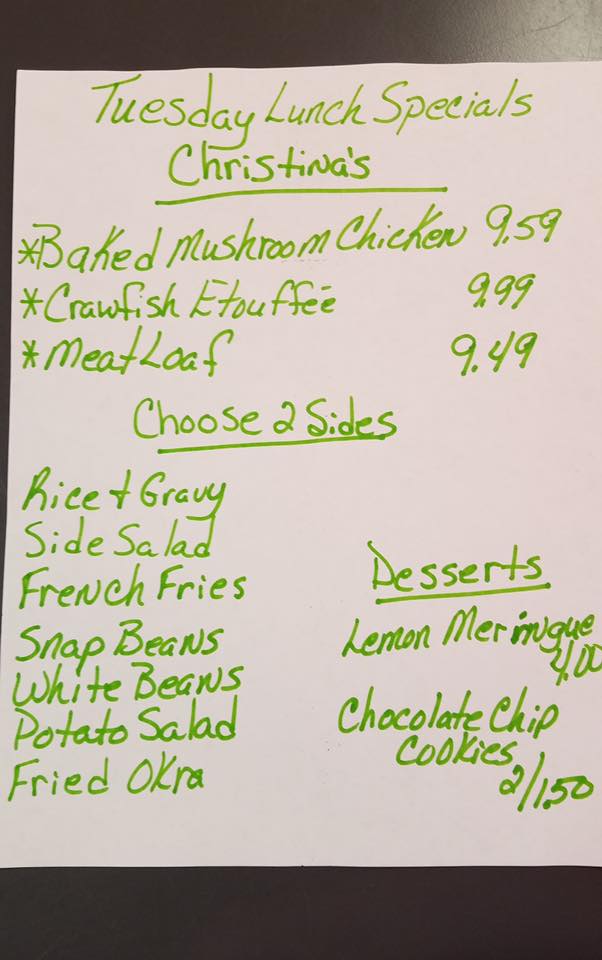 Tuesday Lunch Specials
Christina's
*Baked Mushroom Chicken 9.59
*Crawfish Etouffée 9.99
*Meat Loaf 9.49
Choose 2 Sides
Rice + Gravy
Side Salad
French Fries
Snap Beans
White Beans
Potato Salad
Fried Okra
Desserts
Lemon Meringue
4.00
Chocolate Chip
Cookies
2/1.50